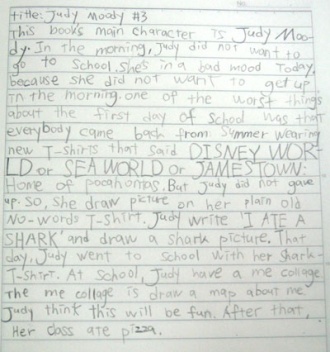 title: Judy Moody #3
This books main character is Judy Moo-
dy. In the morning, Judy did not want to
go to School. She's in a bad mood Today,
because she did not want to get up
in the morning. one of the worst things
about the first day of school was that
everybody came back from Summer wearing
new T-shirts that said DISNEY WOR-
LD or SEA WORLD or JAMESTOWN:
Home of pocahontas. But Judy did not gave
up. SO, she draw picture on her plain old
NO-words T-shirt. Judy write 'I ATE A
SHARK' and draw a shark picture. That
day, Judy went to school with her shark-
T-shirt. At school, Judy have a me collage
The me collage is draw a map about me
Judy think this will be fun. After that,
Her class ate pizza.